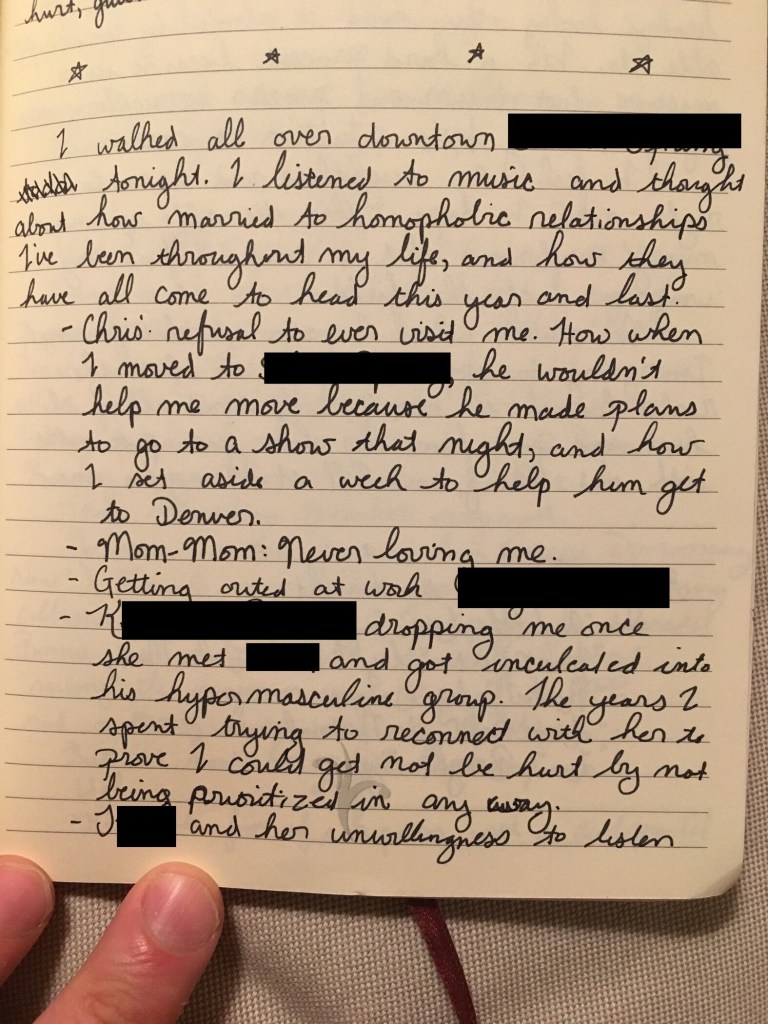 hurt,
I walked all over downtown
tonight. I listened to music and thought
about how married to homophobic relationships
I've been throughout my life, and how they
have all come to head this year and last.
- Chris' refusal to ever visit me. How when
I moved to , he wouldn't
help me move because he made plans
to go to a show that night, and how
I set aside a week to help him get
to Denver.
- Mom-Mom: Never loving me.
- Getting outed at work
- K dropping me once
she met and got inculcated into
his hypermasculine group. The years I
spent trying to reconnect with her to
prove I could get not be hurt by not
being prioritized in any way.
- J and her unwillingness to listen